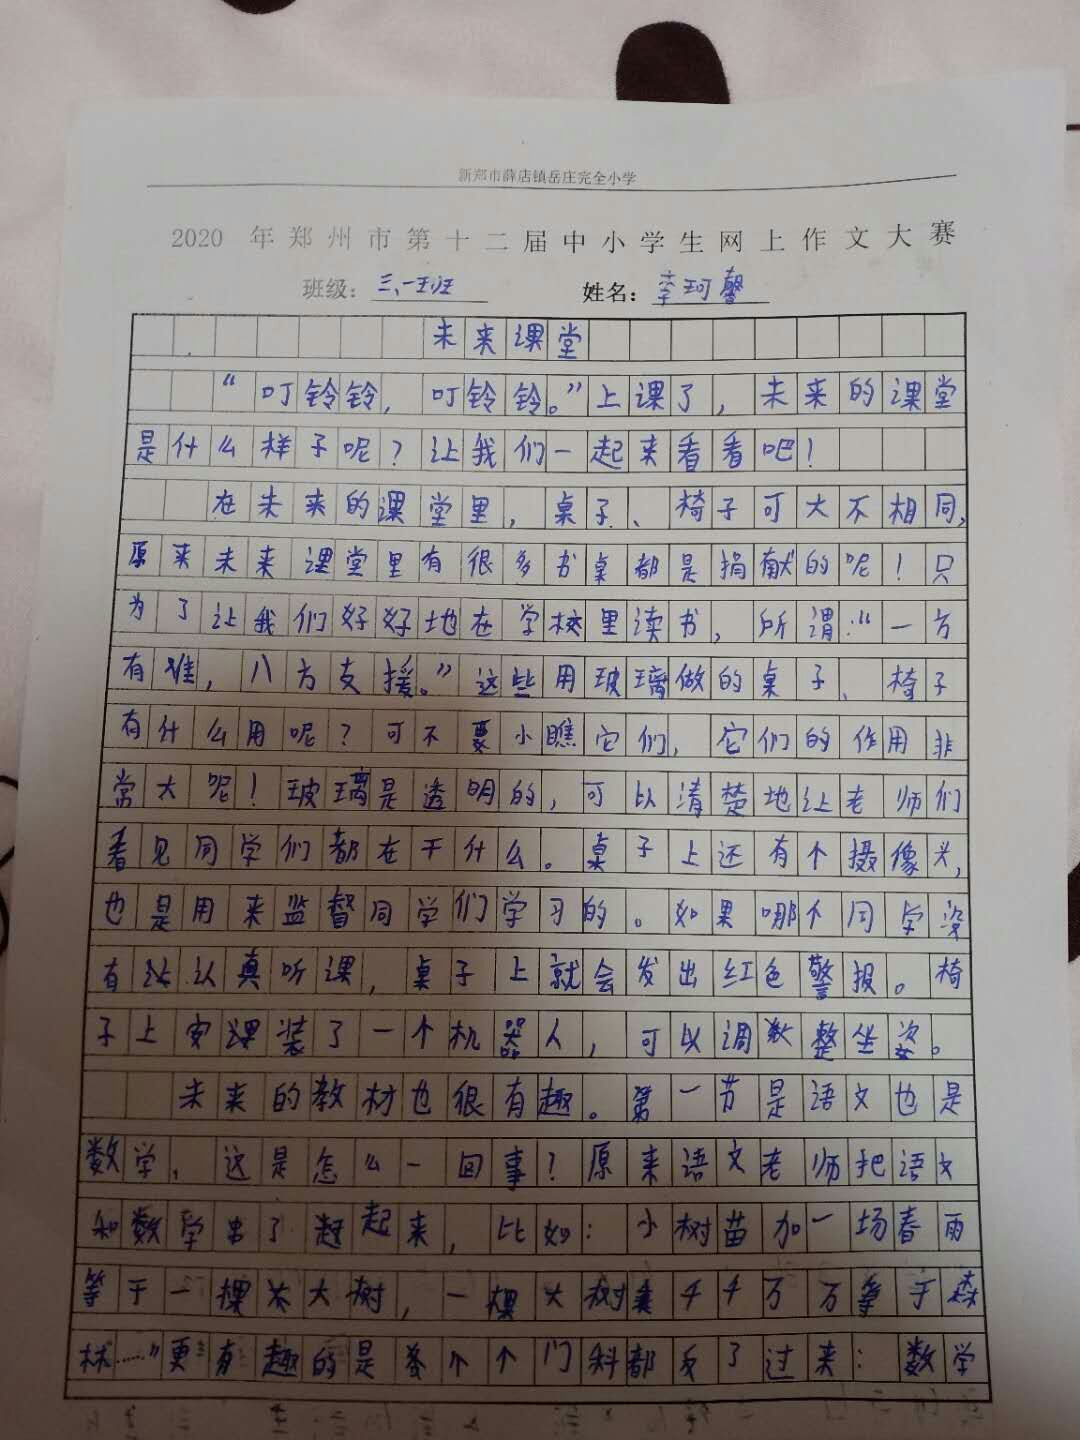 新郑市薛店镇岳庄完全小学
2020 年郑州市第十二届中小学生网上作文大赛
班级：三、一班 姓名：李珂馨
未来课堂
“叮铃铃，叮铃铃。”上课了，未来的课堂
是什么样子呢？让我们一起来看看吧！
在未来的课堂里，桌子、椅子可大不相同，
原来未来课堂里有很多书桌都是捐献的呢！只
为了让我们好好地在学校里读书，所谓：“一方
有难，八方支援。”这些用玻璃做的桌子、椅子
有什么用呢？可不要小瞧它们，它们的作用非
常大呢！玻璃是透明的，可以清楚地让老师们
看见同学们都在干什么。桌子上还有个摄像头，
也是用来监督同学们学习的。如果哪个同学没
有认真听课，桌子上就会发出红色警报。椅
子上安装了一个机器人，可以调整坐姿。
未来的教材也很有趣。第一节是语文也是
数学，这是怎么一回事？原来语文老师把语文
和数学串了起来，比如：小树苗加一场春雨
等于一棵大树，一棵大树乘千千万万等于森
林……”更有趣的是各个门科都反了过来：数学